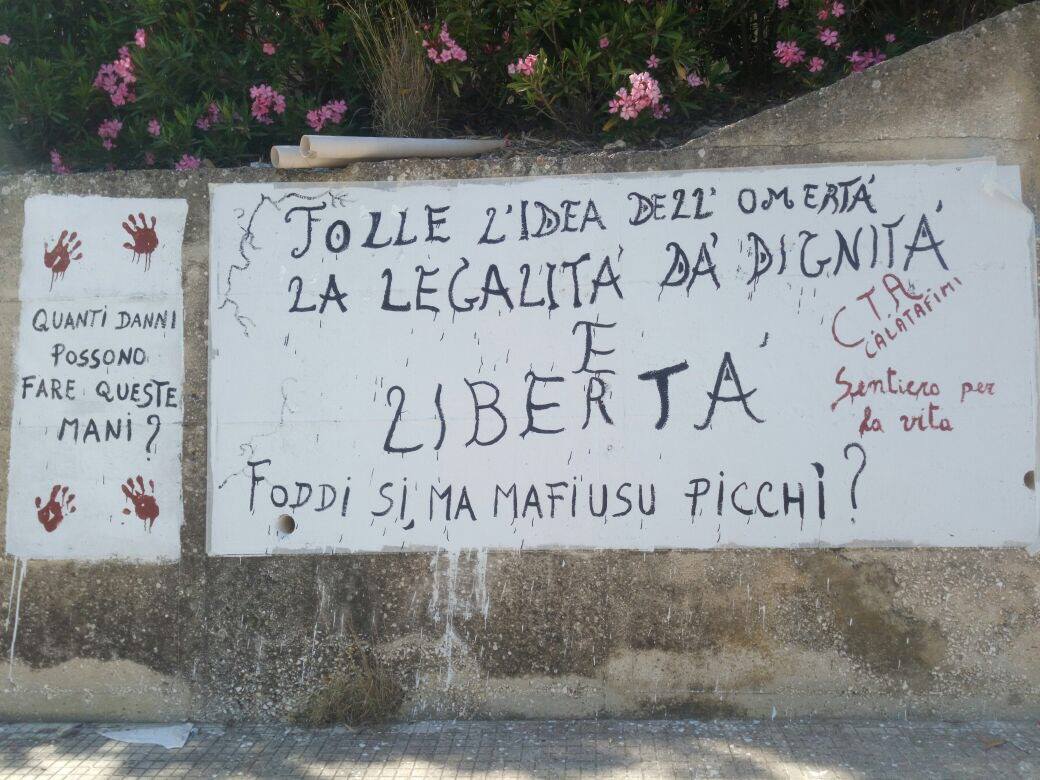 QUANTI DANNI
POSSONO
FARE QUESTE
MANI?
FOLLE L'IDEA DELL' OMERTÁ
LA LEGALITÁ DÁ DIGNITÁ
E
LIBERTÁ
FODDI SI, MA MAFIUSU PICCHÌ?
CTA
CALATAFIMI
Sentiero per
la vita